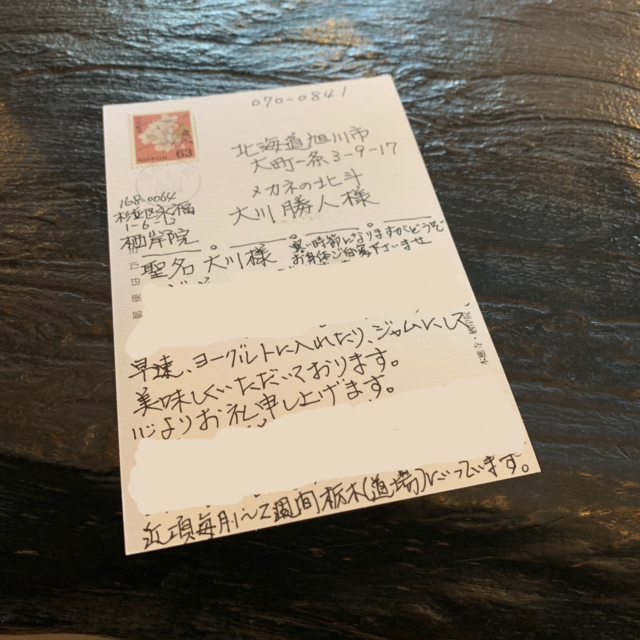 070-0841
NIPPON 63
北海道旭川市
大町一条3-9-17
メガネの北斗
大川勝人様
168-0064
杉並区永福
1-6-
栖岸院
聖名 大川様
暑い時節になりますがどうぞ
お身体ご自愛下さいませ
早速、ヨーグルトに入れたり、ジャムにして
美味しくいただいております。
心よりお礼申し上げます。
近頃毎月1〜2週間栃木(道場)にいっています。
郵便はがき